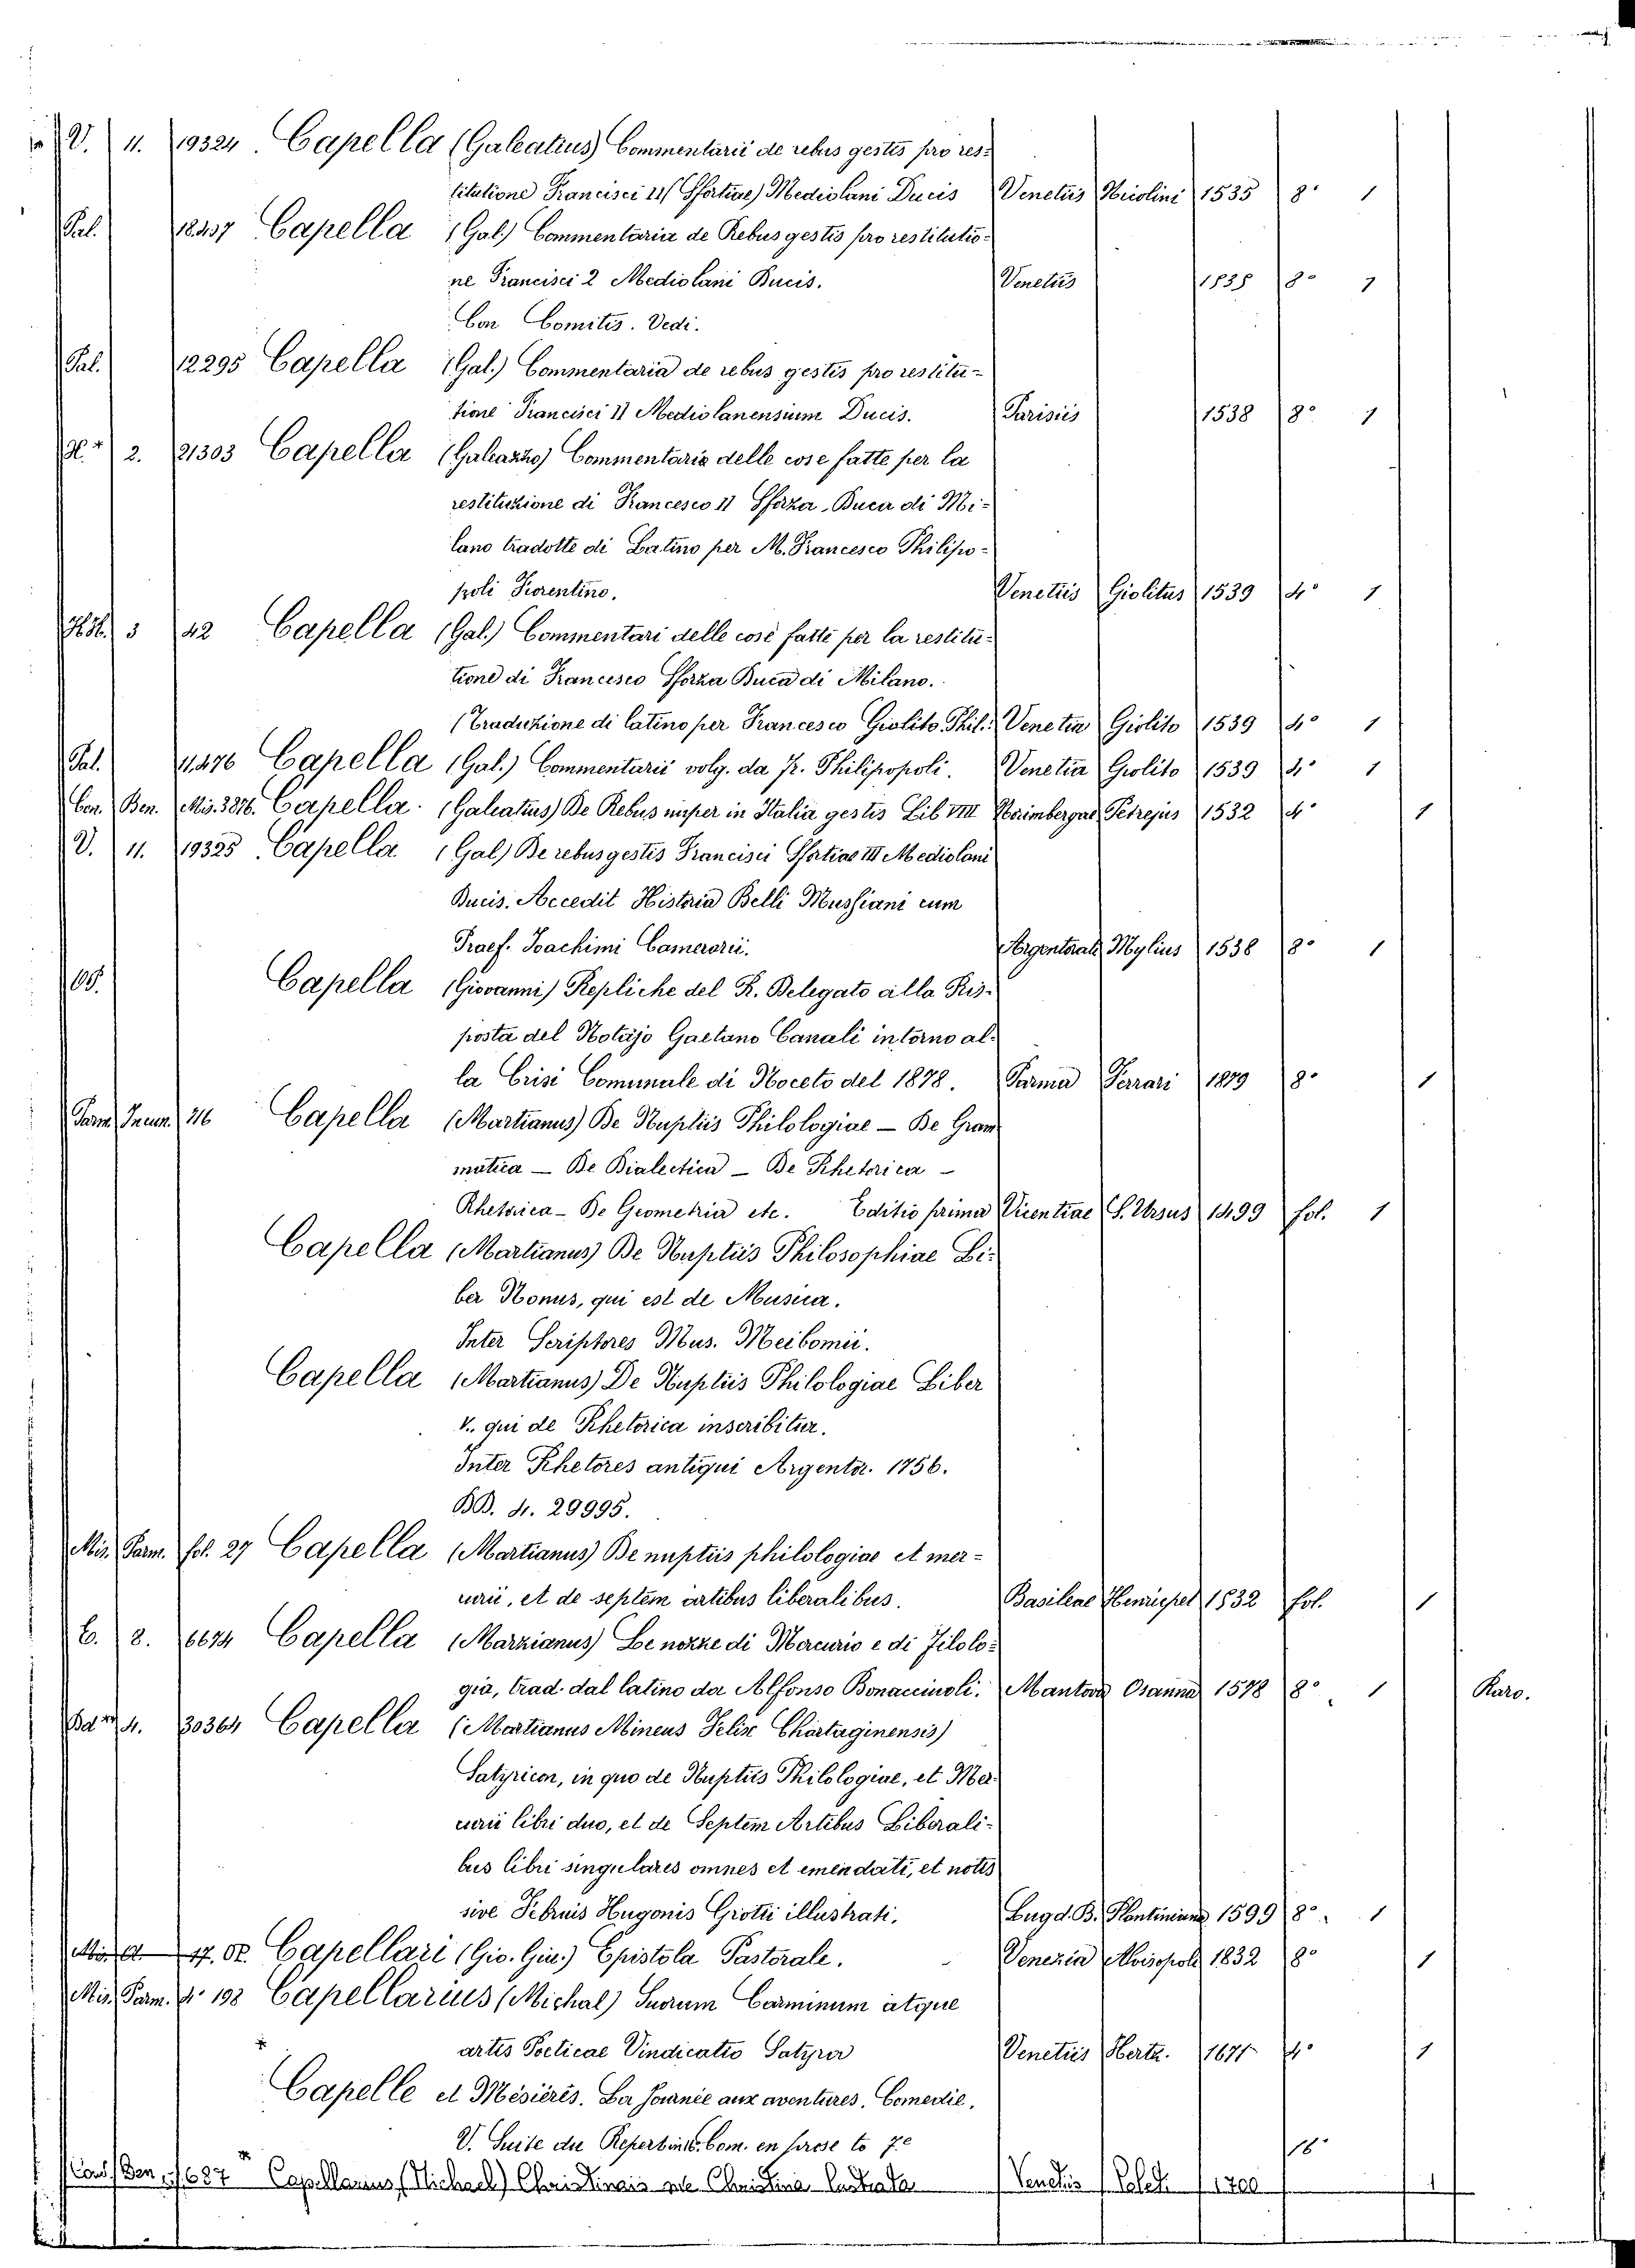 V. 11. 19324 Capella (Galeatius) Commentarii de rebus gestis pro res-
titutione Francisci II Sfortiae Mediolani Ducis Venetiis Nicolini 1535 8° 1
Pal. 18237 Capella (Gal.) Commentariis de Rebus gestis pro restitutio-
ne Francisci 2 Mediolani Ducis. Venetiis 1535 8° 1
Con Comitis. Vedi.
Pal. 12295 Capella (Gal.) Commentaria de rebus gestis pro restitu-
tione Francisci II Mediolanensium Ducis. Parisiis 1538 8° 1
2. 21303 Capella (Galeazzo) Commentaria delle cose fatte per la
restituzione di Francesco II Sforza, Duca di Mi-
lano tradotte di Latino per M. Francesco Philipo-
poli Fiorentino. Venetiis Giolitus 1539 4° 1
HH. 3 42 Capella (Gal.) Commentari delle cose fatte per la restitu-
tione di Francesco Sforza Duca di Milano.
(Traduzione di latino per Francesco Giolito Phil.: Venetia Giolito 1539 4° 1
Pal. 11476 Capella (Gal.) Commentarii volg. da Fr. Philipopoli. Venetia Giolito 1539 4° 1
Con. Ben. Mis. 3286. Capella (Galeatius) De Rebus nuper in Italia gestis Lib VIII Norimbergae Petrejus 1532 4° 1
V. 11. 19325 Capella (Gal) De rebus gestis Francisci Sfortias III Mediolani
Ducis. Accedit Historia Belli Mussiani cum
Praef. Joachimi Camerarii. Argentorati Mylius 1538 8° 1
Capella (Giovanni) Repliche del R. Delegato alla Ris-
posta del Notajo Gaetano Canali intorno al-
la Crisi Comunale di Noceto del 1878. Parma Ferrari 1879 8° 1
Parm. Incun. 216 Capella (Martianus) De Nuptiis Philologiae — De Gram-
matica — De Dialectica — De Rhetorica —
Rhetorica — De Geometria etc. Editio prima Vicentiae S. Ursus 1499 fol. 1
Capella (Martianus) De Nuptiis Philosophiae Li-
ber Nonus, qui est de Musica.
Inter Scriptores Mus. Meibomii.
Capella (Martianus) De Nuptiis Philologiae Liber
V., qui de Rhetorica inscribitur.
Inter Rhetores antiqui Argentor. 1756.
BB. 4. 29995.
Mis. Parm. fol. 27 Capella (Martianus) De nuptiis philologiae et mer-
curii, et de septem artibus liberalibus. Basileae Henricpet 1532 fol. 1
C. 8. 6674 Capella (Marzianus) Le nozze di Mercurio e di Filolo-
gia, trad. dal latino da Alfonso Bonacciuoli. Mantova Osanna 1578 8° 1 Raro.
4. 30364 Capella (Martianus Mineus Felix Chartaginensis)
Satyricon, in quo de Nuptiis Philologiae, et Mer-
curii libri duo, et de Septem Artibus Liberali-
bus libri singulares omnes et emendati, et notis
sive Februis Hugonis Grotii illustrati. Lugd. B. Plantiniana 1599 8° 1
Capellari (Gio. Giu.) Epistola Pastorale. Venezia Alvisopoli 1832 8° 1
Mis. Parm. 4° 198 Capellarius (Michal) Suorum Carminum atque
artis Poeticae Vindicatio Satyra Venetiis Hertz. 1671 4° 1
Capelle et Mésières. La Journée aux aventures, Comedie.
V. Suite du Repert. Com. en prose to 7.e
18°
Ben 687 Capellarius (Michael) Christinais sive Christina lustrata Venetiis Poleti 1700 1